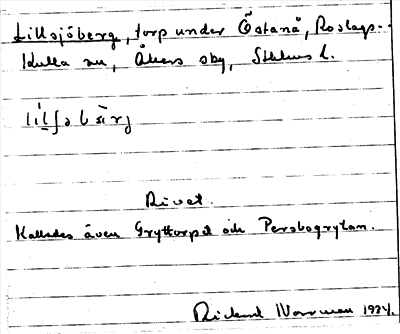 Lillsjöberg, torp under Östanå, Roslags-
Kulla sn, Åkers sky, Sthlms l.
Rivet.
Kallades även Gryttorpet och Persbogrytan.
Rickard Norrman 1934.